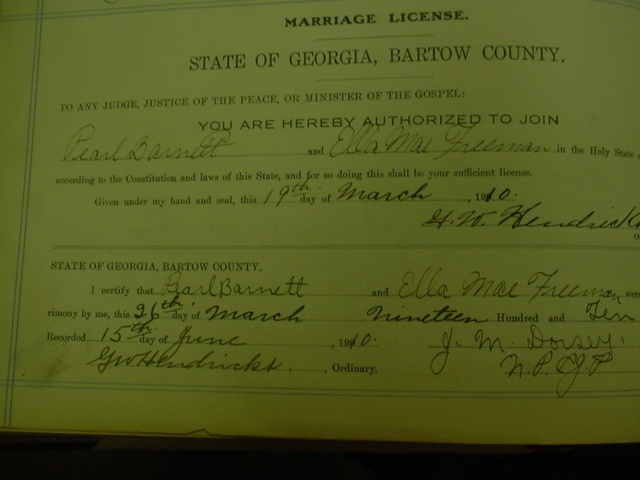 MARRIAGE LICENSE.
STATE OF GEORGIA, BARTOW COUNTY.
TO ANY JUDGE, JUSTICE OF THE PEACE, OR MINISTER OF THE GOSPEL:
YOU ARE HEREBY AUTHORIZED TO JOIN
Pearl Barnett and Ella Mae Freeman in the Holy State
according to the Constitution and laws of this State, and for so doing this shall be your sufficient license.
Given under my hand and seal, this 19th day of March, 1910.
G. W. Hendricks
STATE OF GEORGIA, BARTOW COUNTY.
I certify that Pearl Barnett and Ella Mae Freeman were
rimony by me, this 26th day of March Nineteen Hundred and Ten
Recorded 15th day of June, 1910. J. M. Dorsey,
GW Hendricks, Ordinary. N.P. & J.P